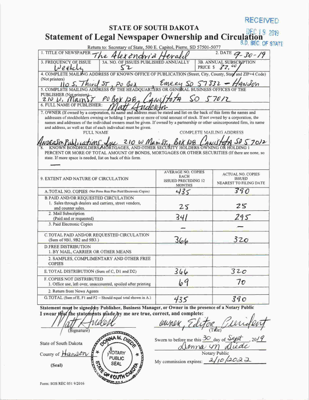 RECEIVED
DEC 15 2019
S.D. SEC OF STATE
STATE OF SOUTH DAKOTA
Statement of Legal Newspaper Ownership and Circulation
Return to: Secretary of State, 500 E. Capitol, Pierre, SD 57501-5077
1. TITLE OF NEWSPAPER The Alexandria Herald
2. DATE 9-30-19
3. FREQUENCY OF ISSUE Weekly
3A. NO. OF ISSUES PUBLISHED ANNUALLY 52
3B. ANNUAL SUBSCRIPTION PRICE $
4. COMPLETE MAILING ADDRESS OF KNOWN OFFICE OF PUBLICATION (Street, City, County, State and ZIP+4 Code)
(Not printers)
5. COMPLETE MAILING ADDRESS OF THE HEADQUARTERS OR GENERAL BUSINESS OFFICES OF THE
PUBLISHER (Not printers)
210 W. Main St PO Box 126, Canistota SD 57012
6. FULL NAME OF PUBLISHER: Matt Anderson
7. OWNER (If owned by a corporation, its name and address must be stated and
addresses of stockholders owning or holding 1 percent or more of total amount of stock. If not owned by a corporation, the
names and addresses of the individual owners must be given. If owned by a partnership or other unincorporated firm, its name
and address, as well as that of each individual must be given.
FULL NAME COMPLETE MAILING ADDRESS
Anderson Publications, Inc. 210 W. Main St. Box 126 Canistota SD 57012
8. KNOWN BONDHOLDERS, MORTGAGEES, AND OTHER SECURITY HOLDERS OWNING OR HOLDING 1
PERCENT OR MORE OF TOTAL AMOUNT OF BONDS, MORTGAGES OR OTHER SECURITIES (If there are none, so
state. If more space is needed, list on back of this form.
9. EXTENT AND NATURE OF CIRCULATION
AVERAGE NO. COPIES EACH ISSUED PRECEDING 12 MONTHS
ACTUAL NO. COPIES ISSUED NEAREST TO FILING DATE
A. TOTAL NO. COPIES 435 390
B. PAID AND/OR REQUESTED CIRCULATION
1. Sales through dealers and carriers, street vendors, and counter sales. 25 25
2. Mail Subscription (Paid and or requested) 341 295
3. Paid Electronic Copies — —
C. TOTAL PAID AND/OR REQUESTED CIRCULATION
(Sum of 9B1, 9B2 and 9B3.) 366 320
D. FREE DISTRIBUTION
1. BY MAIL, CARRIER OR OTHER MEANS
2. SAMPLES, COMPLIMENTARY AND OTHER FREE COPIES
E. TOTAL DISTRIBUTION (Sum of C, D1 and D2) 366 320
F. COPIES NOT DISTRIBUTED
1. Office use, left over, unaccounted, spoiled after printing 69 70
2. Return from News Agents
G. TOTAL (Sum of E, F1 and F2 - Should equal total shown in A) 435 390
Statement must be signed by Publisher, Business Manager, or Owner in the presence of a Notary Public
I swear that the statements made by me are true, correct, and complete:
(Signature)
owner, Editor, President
(Title)
State of South Dakota
Sworn to before me this 30 day of Sept 2019
County of Hanson
Notary Public
(Seal)
My commission expires: 2/10/2022
NOTARY
PUBLIC
SEAL
SOUTH DAKOTA